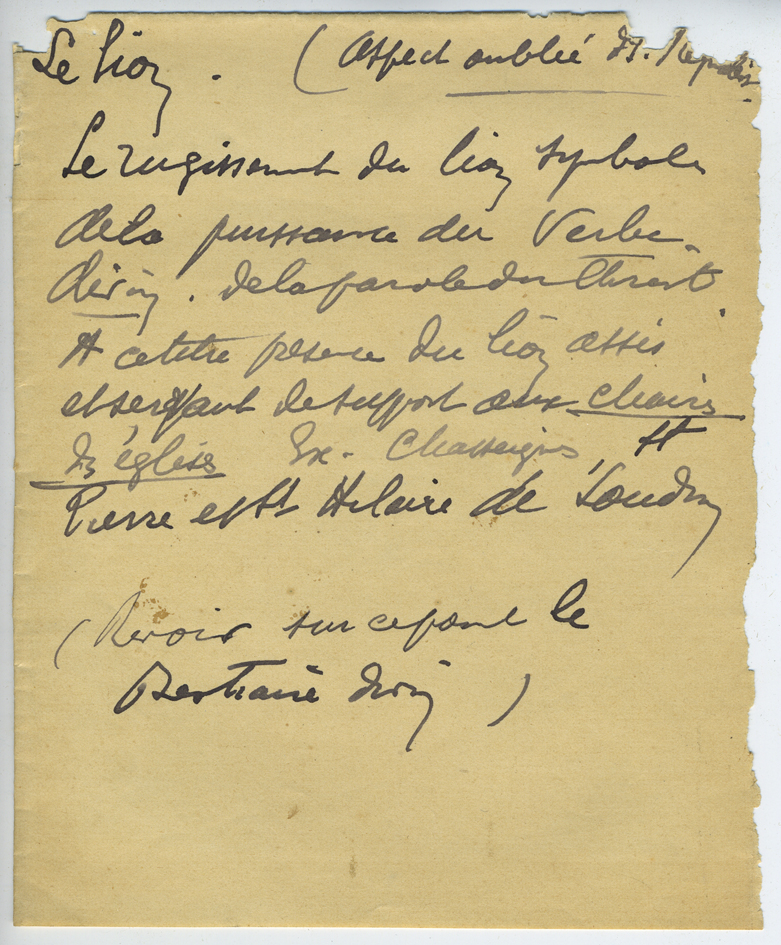 Le lion. (Aspect oublié ds.
Le rugissement du lion symbole
de la puissance du Verbe
divin. de la parole du Christ
A ce titre présence du lion assis
et servant de support aux chaires
des églises Ex. Chasseignes, St
Pierre et St Hilaire de Loudun
(Revoir sur ce point le
Bestiaire divin)